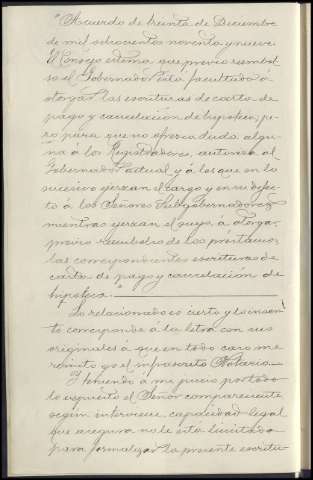 "Acuerdo de treinta de Diciembre
de mil ochocientos noventa y nueve.
El Consejo estima que previo reembol-
so el Gobernador está facultado á
otorgar las escrituras de carta de
pago y cancelación de hipoteca, pe-
ro para que no ofrezca duda algu-
na á los Registradores, autoriza al
Gobernador actual y á los que en lo
sucesivo ejerzan el cargo y en su defec-
to á los Señores Subgobernadores
mientras ejerzan el suyo, á otorgar,
previo reembolso de los préstamos,
las correspondientes escrituras de
carta de pago y cancelación de
hipoteca."
Lo relacionado es cierto y lo inser-
to corresponde á la letra con sus
originales á que en todo caso me
remito yo el infrascrito Notario.
Y teniendo á mi juicio por todo
lo expuesto el Señor compareciente
según interviene, capacidad legal
que asegura no le está limitada
para formalizar la presente escritu-